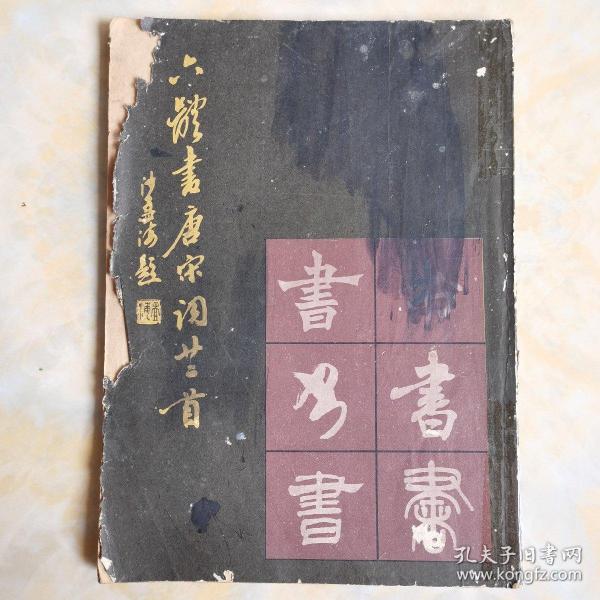 六體書唐宋词廿二首
沙孟海题
書
書
书
書
書
孔夫子旧书网
www.kongfz.com